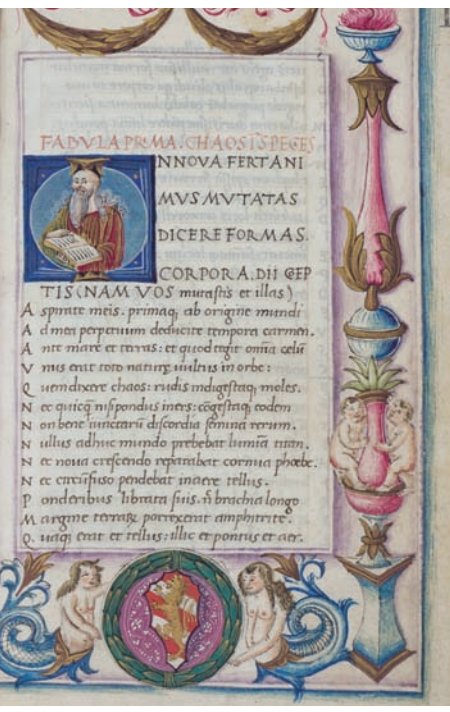 FABVLA PRIMA. CHAOS I SPECES
NNOVA FERT ANI
MVS MVTATAS
DICERE FORMAS.
CORPORA. DII CEP
TIS (NAM VOS mutastis et illas)
A spirate meis. primaq; ab origine mundi
A d mea perpetuum deducite tempora carmen.
A nte mare et terras: et quod tegit omnia celū
V nus erat toto nature vultus in orbe:
Q uem dixere chaos: rudis indigestaq; moles.
N ec quicq̄ nisi pondus iners: cōgestaq; eodem
N on bene iunctarū discordia semina rerum.
N ullus adhuc mundo prebebat lumina titan.
N ec noua crescendo reparabat cornua phœbe.
N ec circūfuso pendebat in aere tellus.
P onderibus librata suis. n̄ brachia longo
M argine terraꝝ porrexerat amphitrite.
Q. uaq; erat et tellus: illic et pontus et aer.